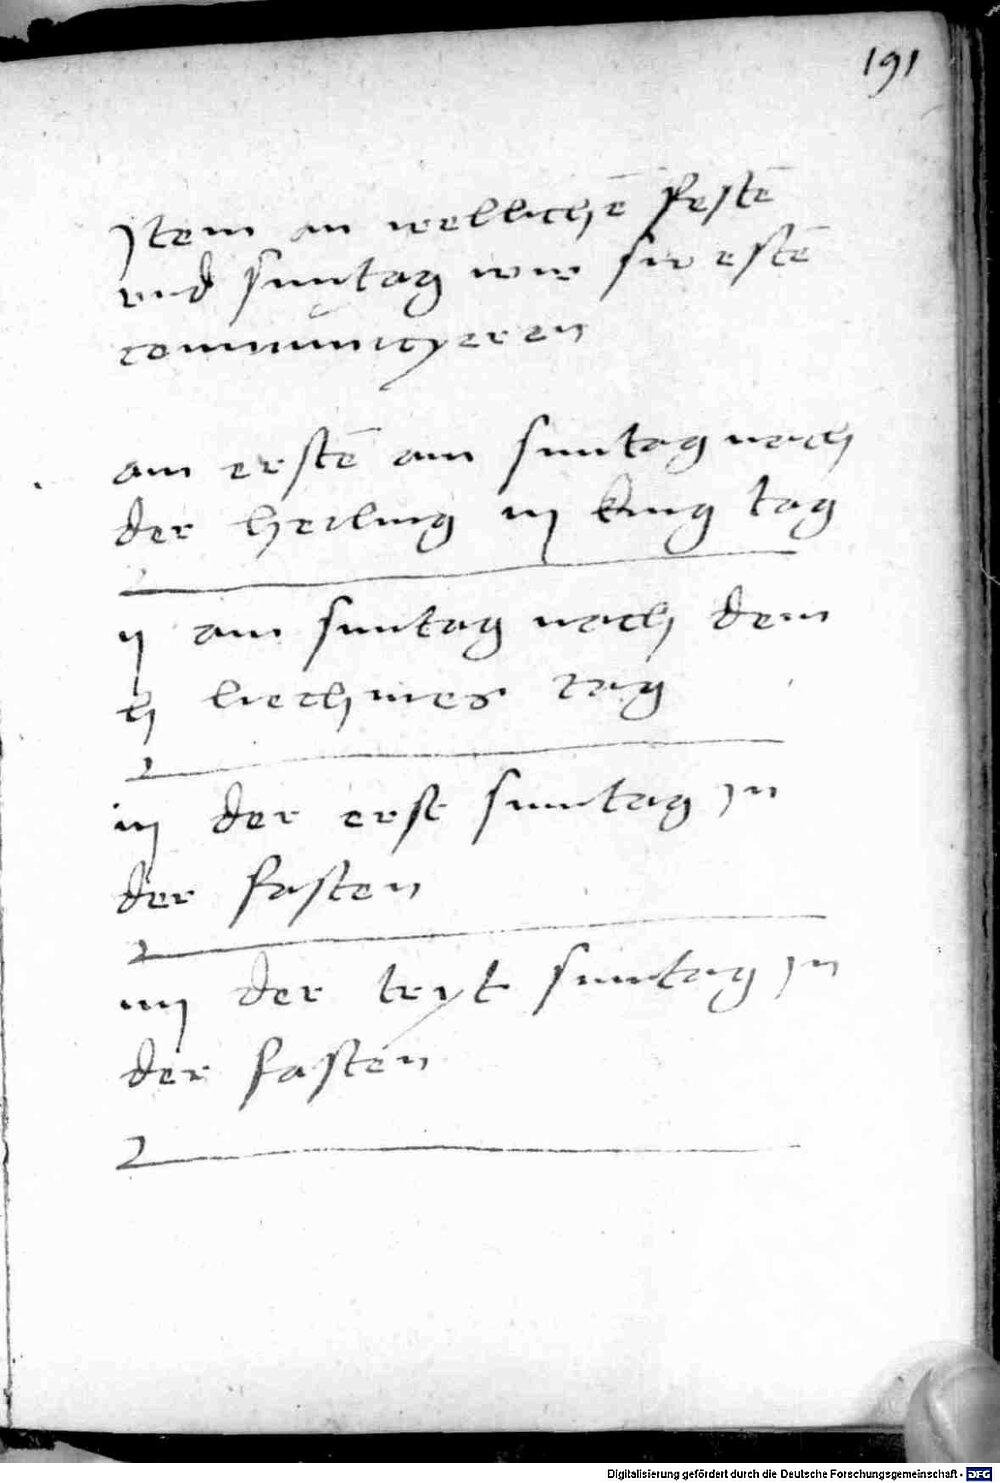 191
Jtem an wellichē festē
vnd suntag wir sir estē
communicyeren
am erstē am suntag nach
der heiling iij king tag
ij am suntag nach dem
h liechmes tag
iij der erst suntag jn
der fasten
iiij der tryt suntag jn
der fasten
Digitalisierung gefördert durch die Deutsche Forschungsgemeinschaft - DFG